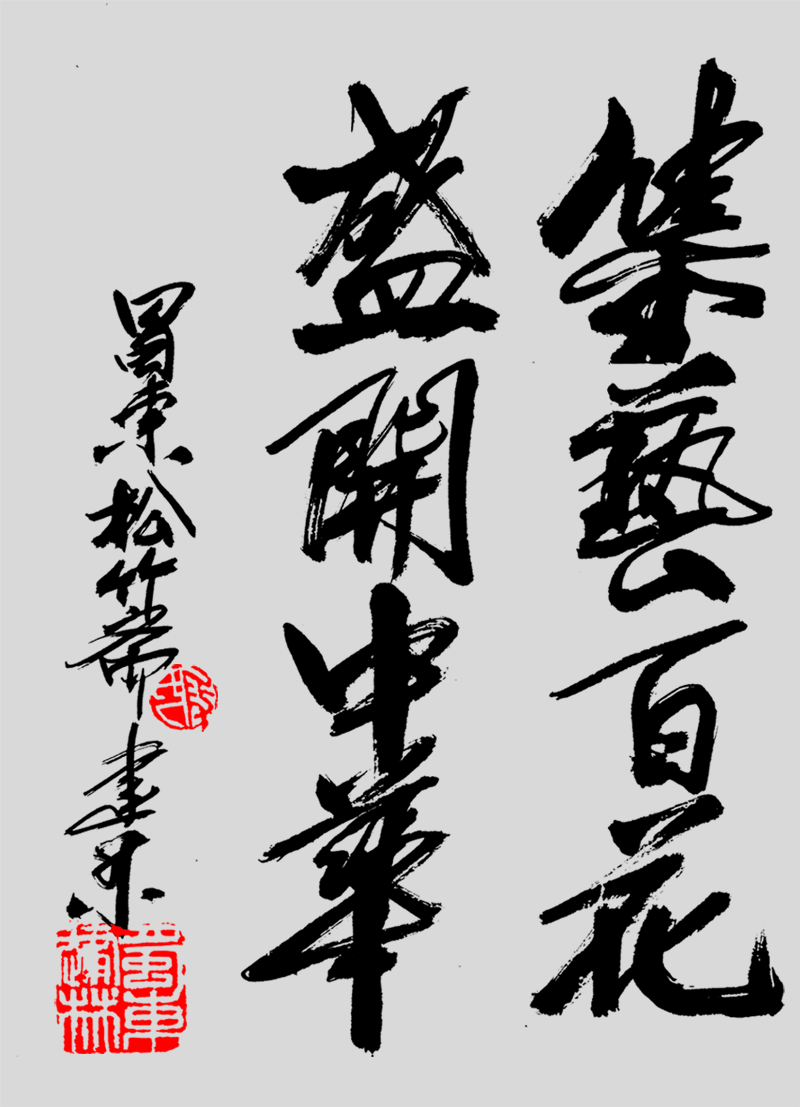 集藝百花
盛開中華
東松竹齋 建